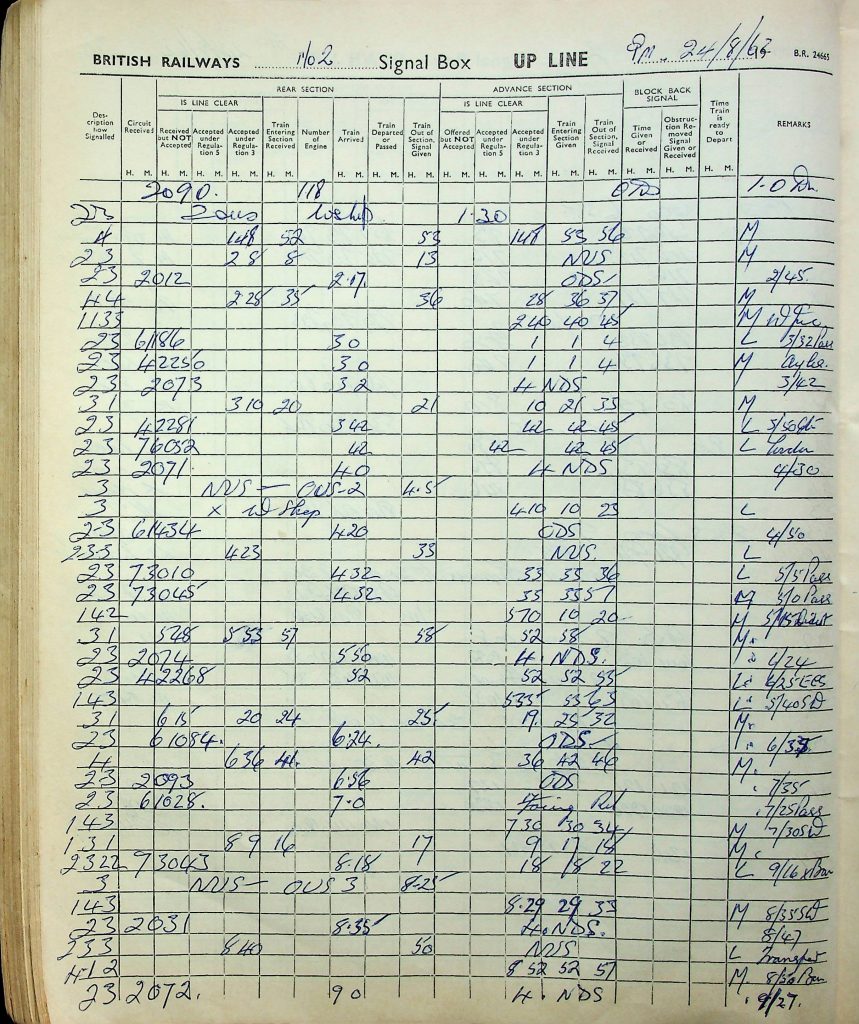 BRITISH RAILWAYS No 2 Signal Box UP LINE Pm 24/8/63 B.R. 24665
REAR SECTION ADVANCE SECTION BLOCK BACK SIGNAL
IS LINE CLEAR IS LINE CLEAR
Description how Signalled Circuit Received Received but NOT Accepted Accepted under Regulation 5 Accepted under Regulation 3 Train Entering Section Received Number of Engine Train Arrived Train Departed or Passed Train Out of Section, Signal Given Offered but NOT Accepted Accepted under Regulation 5 Accepted under Regulation 3 Train Entering Section Given Train Out of Section, Signal Received Time Given or Received Obstruction Removed Signal Given or Received Time Train is ready to Depart REMARKS
H. M. H. M. H. M. H. M. H. M. H. M. H. M. H. M. H. M. H. M. H. M. H. M. H. M. H. M. H. M. H. M.
2090. 118 ODS
23 1.30
4 148 52 53 148 53 56 M
23 28 8 13 NUS M
23 2012 2.17 ODS 2/45.
44 228 35 36 28 36 37 M
1133 240 40 45 M
23 61186 30 1 1 4 L 3/32 Pass
23 42250 30 1 1 4 M
23 2073 32 4 NDS 3/42
31 310 20 21 10 21 35 M
23 42281 342 42 42 45 L
23 76052 42 42 42 45 L
23 2071 40 4 NDS 4/30
3 NUS — OUS-2 4.5
3 x W Shop 410 10 23 L
23 61434 420 ODS 4/50
235 423 33 NUS. L
23 73010 432 33 33 36 L 5/5 Pass
23 73045 432 33 33 57 M 5/0 Pass
142 510 10 20 M
31 548 553 57 58 52 58 M.
23 2074 550 4. NDS. 4/24
23 42268 52 52 52 55 L 4/25 ECS
143 535 53 63 L 5/40 SD
31 615 20 24 25 19. 25 32 M.
23 61084. 6.24. ODS 6/35
4 636 41. 42 36 42 46 M.
23 2093 6.56 ODS 7/35
23 61028. 7.0 7/25 Pass
143 730 30 34 M 7/30 SD
131 89 16 17 9 17 18 M.
2322 73043 8.18 18 18 22 L 9/16
3 NUS — OUS 3 8-25
143 8.29 29 33 M 8/35 SD
23 2031 8.35 4. NDS. 8/47
233 840 50 NUS L Transfer
412 852 52 57 M. 8/50
23 2072. 90 4. NDS 9/27.